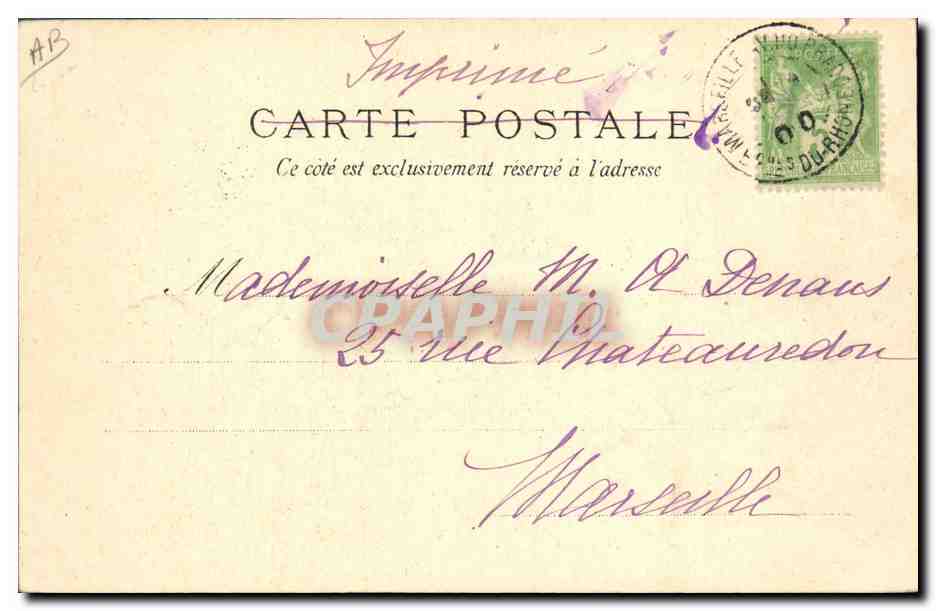 AB
Imprimé
CARTE POSTALE
Ce côté est exclusivement réservé à l'adresse
MARSEILLE
DU-RHÔNE
00
Mademoiselle M. A Denans
CPAPHIL
25 rue Chateauredon
Marseille